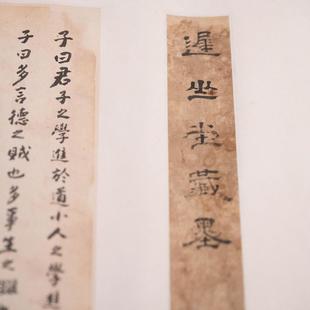 遲藏墨
子曰君子之學進於道小人之學進
子曰多言德之賊也多事生之